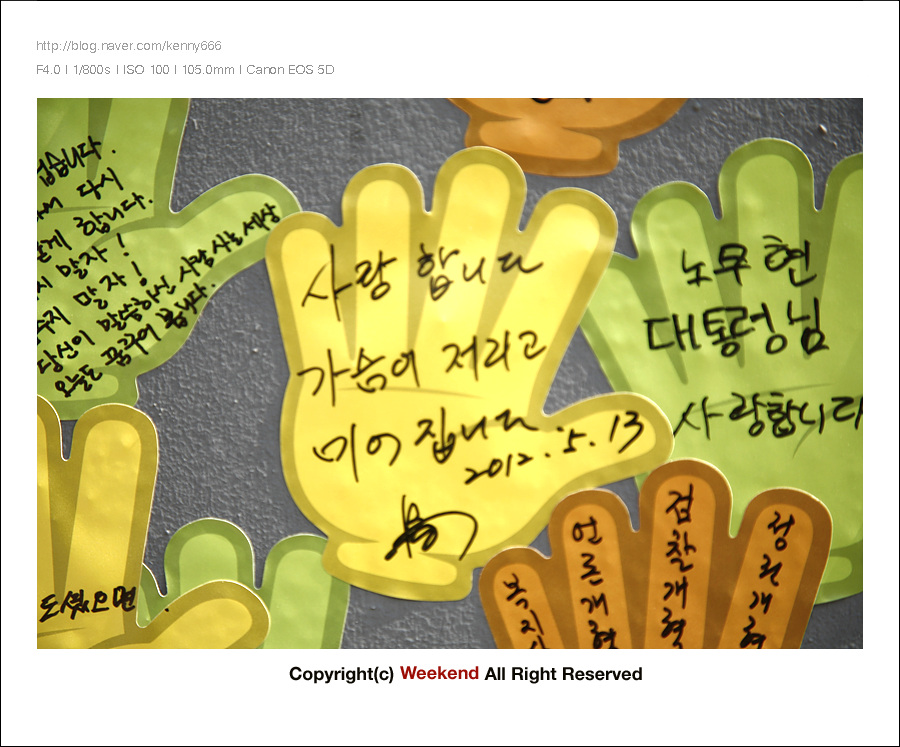 http://blog.naver.com/kenny666
F4.0 | 1/800s | ISO 100 | 105.0mm | Canon EOS 5D
다시
합니다.
말자!
말자!
당신이 말씀하신 사람 사는 세상
오늘도 꿈꾸어 봅니다.
사랑 합니다
가슴이 저리고
미어 집니다
2012.5.13
노무현
대통령님
사랑합니다
도셨으면
언론개혁
검찰개혁
정권개혁
Copyright(c) Weekend All Right Reserved